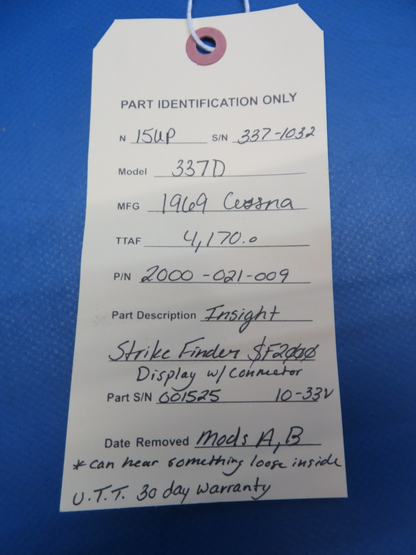 PART IDENTIFICATION ONLY
N 15UP S/N 337-1032
Model 337D
MFG 1969 Cessna
TTAF 4,170.0
P/N 2000-021-009
Part Description Insight
Strike Finder SF2000
Display w/ Connector
Part S/N 001525 10-33V
Date Removed Mods A, B
* can hear something loose inside
U.T.T. 30 day warranty